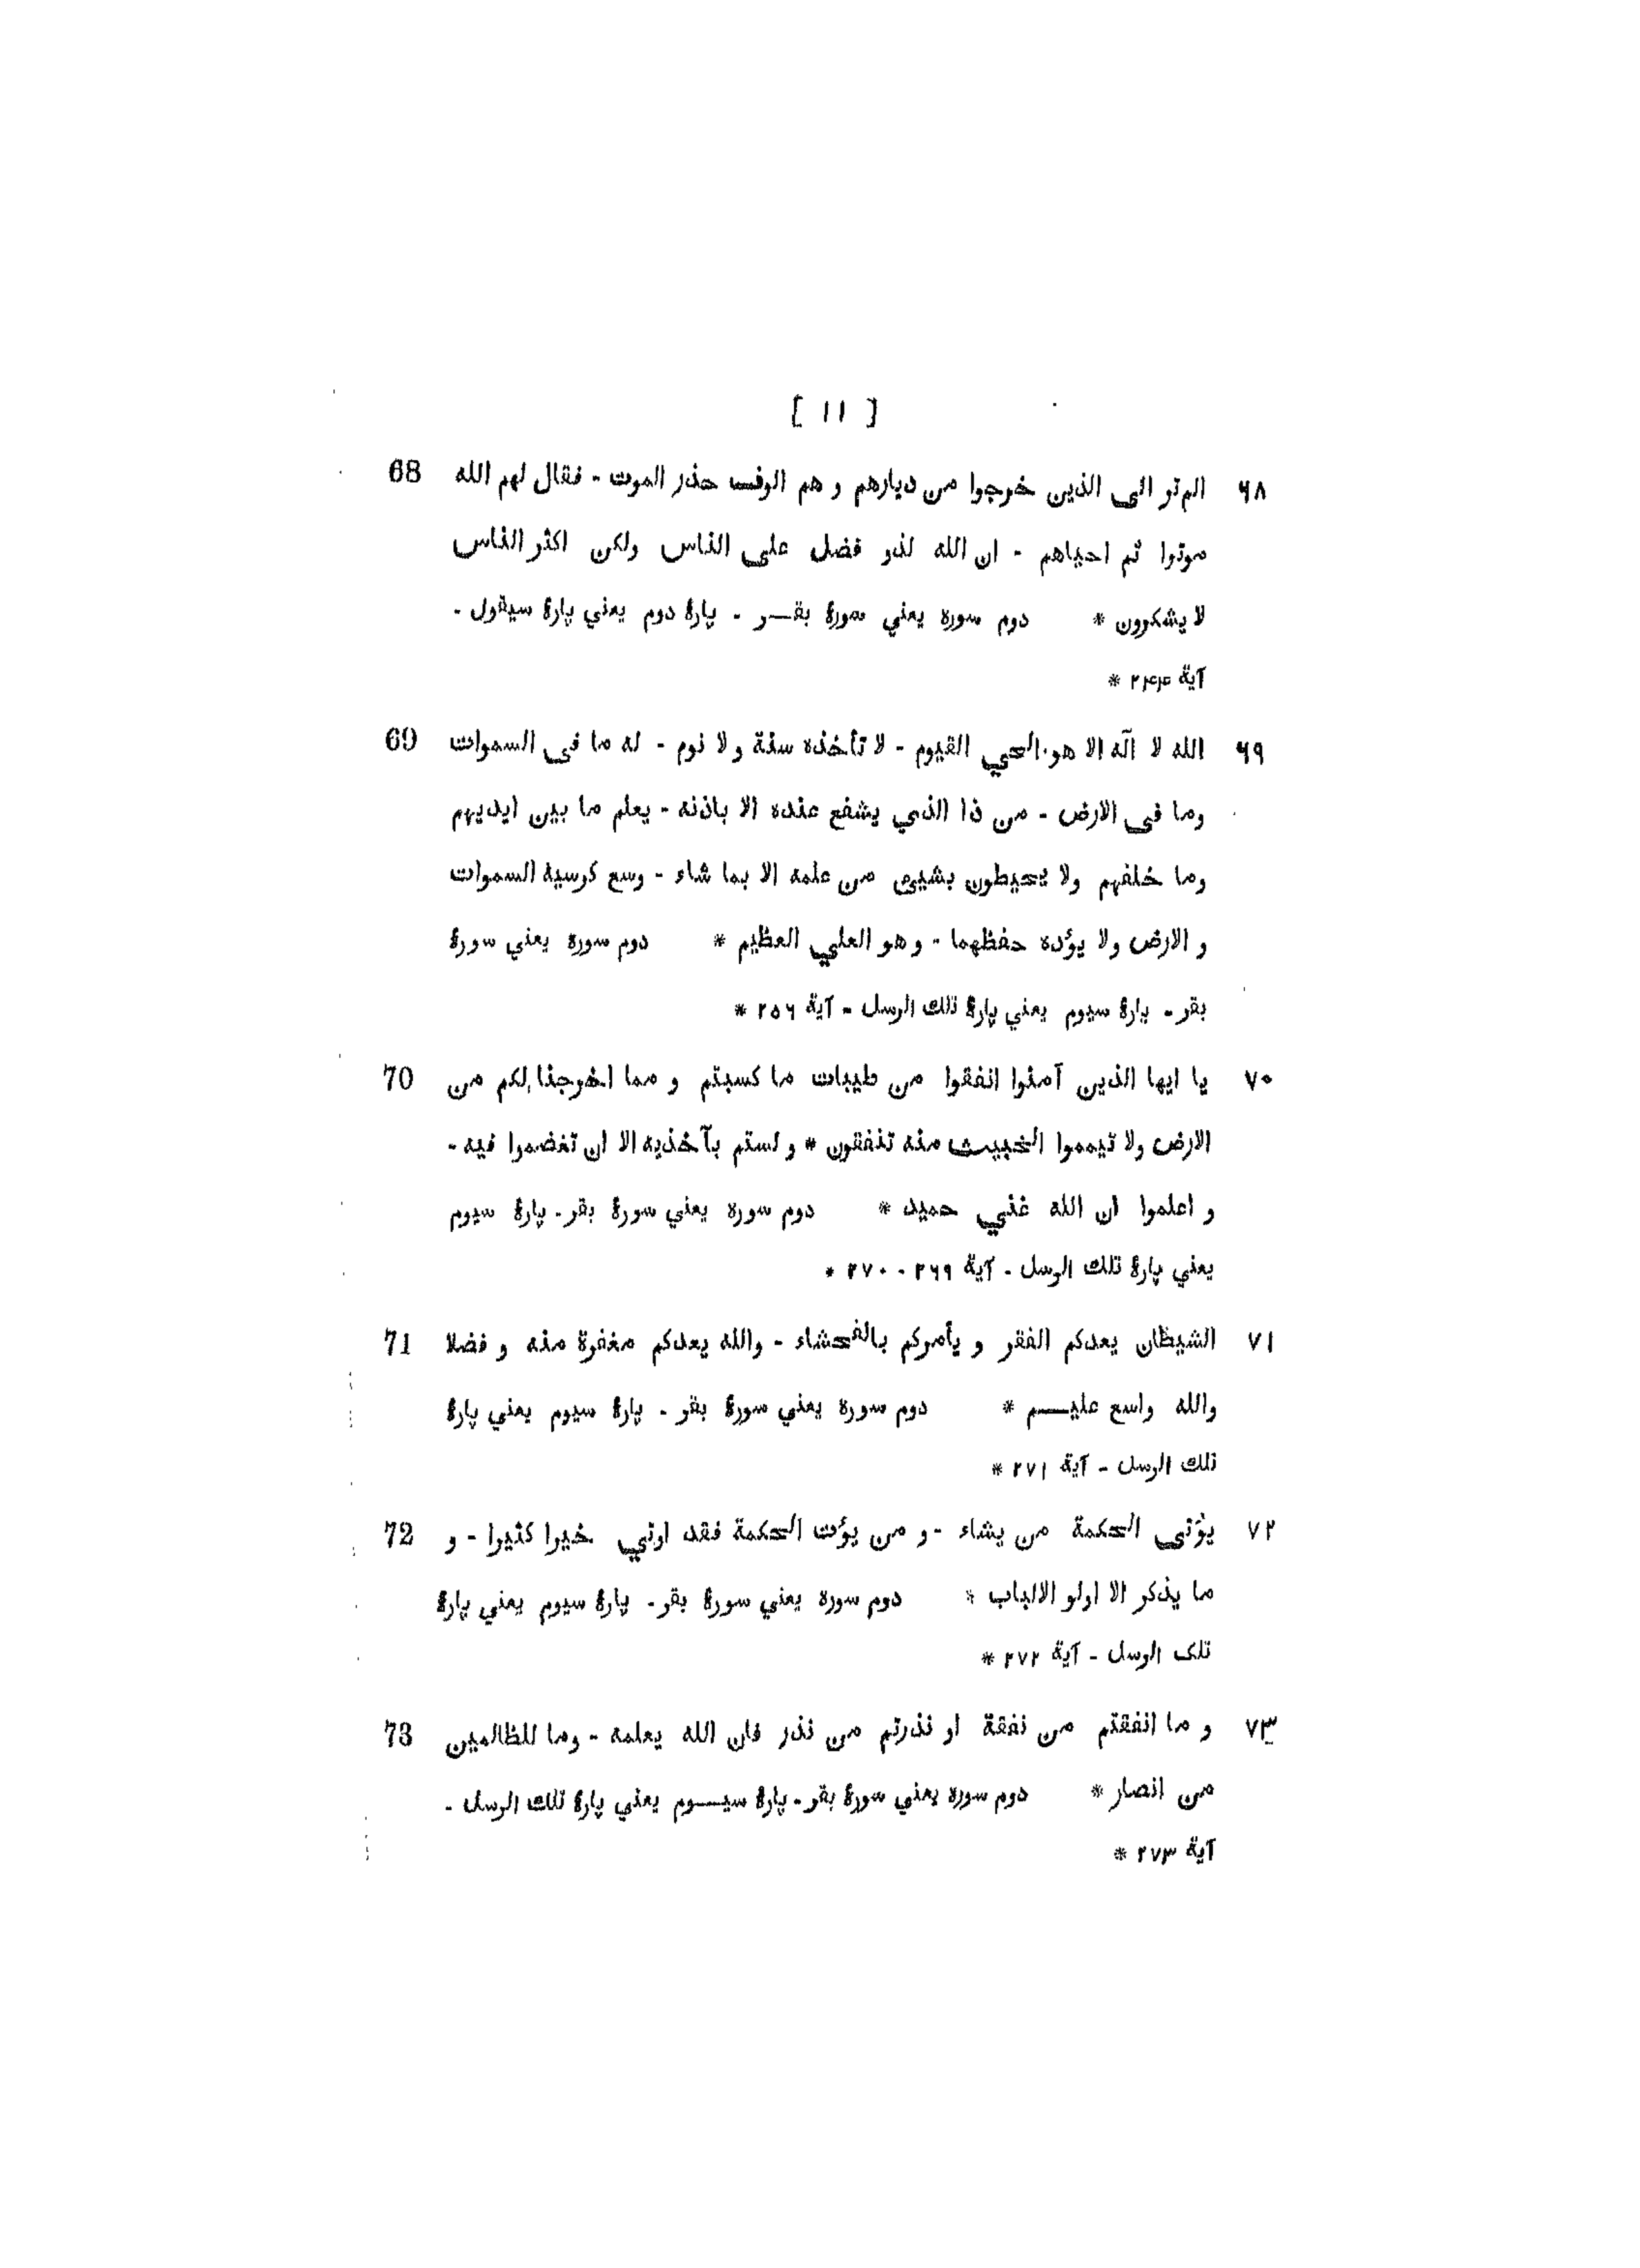 [ ١١ ]
٦٨ الم تر الى الذين خرجوا من ديارهم و هم الوف حذر الموت - فقال لهم الله 68
موتوا ثم احياهم - ان الله لذو فضل على الناس ولكن اكثر الناس
لا يشكرون * دوم سوره يعني سورۀ بقـــر - پارۀ دوم يعني پارۀ سيقول -
آية ٢٤٤ *
٦٩ الله لا آله الا هو الحي القيوم - لا تأخذه سنة و لا نوم - له ما فى السموات 69
وما فى الارض - من ذا الذي يشفع عنده الا باذنه - يعلم ما بين ايديهم
وما خلفهم ولا يحيطون بشيئ من علمه الا بما شاء - وسع كرسيه السموات
و الارض ولا يؤده حفظهما - و هو العلي العظيم * دوم سوره يعني سورۀ
بقر - پارۀ سيوم يعني پارۀ تلك الرسل - آية ٢٥٦ *
٧٠ يا ايها الذين آمنوا انفقوا من طيبات ما كسبتم و مما اخرجنا لكم من 70
الارض ولا تيمموا الخبيث منه تنفقون * و لستم بآخذيه الا ان تغضموا فيه -
و اعلموا ان الله غني حميد * دوم سوره يعني سورۀ بقر - پارۀ سيوم
يعني پارۀ تلك الرسل - آية ٢٦٩ - ٢٧٠ *
٧١ الشيظان يعدكم الفقر و يأمركم بالفحشاء - والله يعدكم مغفرة منه و فضلا 71
والله واسع عليـــم * دوم سوره يعني سورۀ بقر - پارۀ سيوم يعني پارۀ
تلك الرسل - آية ٢٧١ *
٧٢ يؤتى الحكمة من يشاء - و من يؤت الحكمة فقد اوتي خيرا كثيرا - و 72
ما يذكر الا اولو الالباب * دوم سوره يعني سورۀ بقر - پارۀ سيوم يعني پارۀ
تلک الرسل - آية ٢٧٢ *
٧٣ و ما انفقتم من نفقة او نذرتم من نذر فان الله يعلمه - وما للظالمين 73
من انصار * دوم سوره يعني سورۀ بقر - پارۀ سيـــوم يعني پارۀ تلك الرسل -
آية ٢٧٣ *